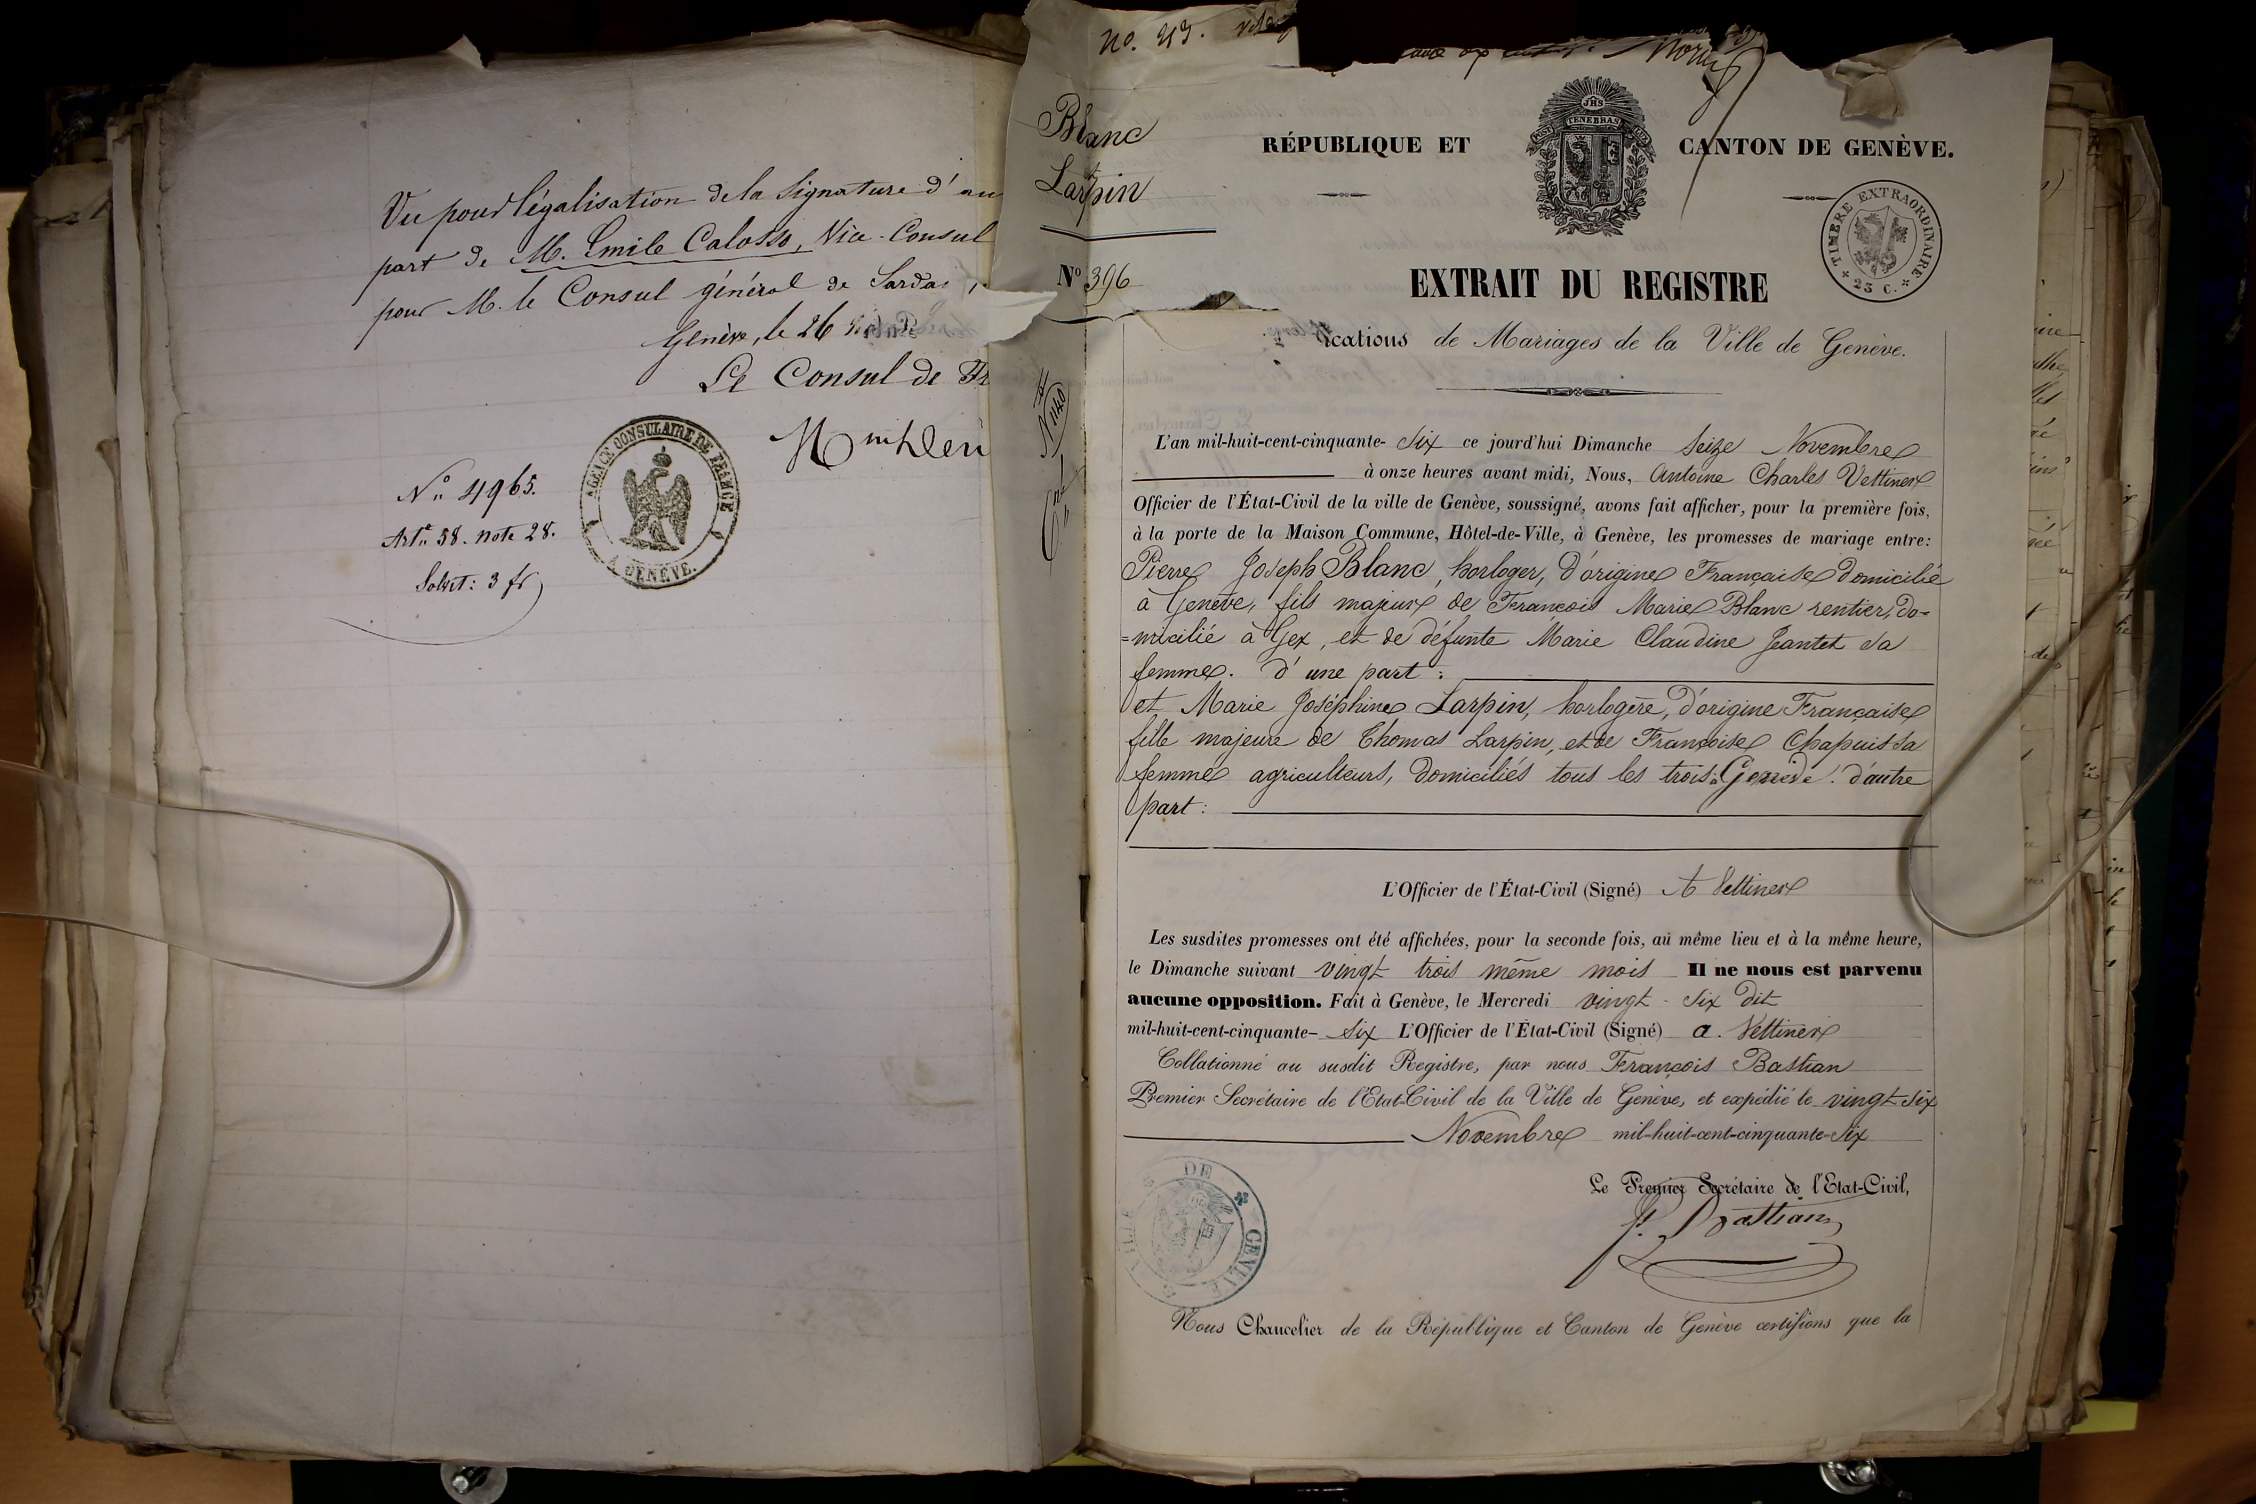 Vu pour légalisation de la signature d'au
part de M. Emile Calosso, Vice-Consul
pour M. le Consul général de Sardai
Genève, le 26
Le Consul de Fr
AGENCE CONSULAIRE DE FRANCE
A GENÈVE.
N° 4965.
Art. 58. note 28.
Solvit: 3 fr
No. 43.
Blanc
Larpin
N° 396
N 1140
RÉPUBLIQUE ET CANTON DE GENÈVE.
JHS
POST TENEBRAS LUX
TIMBRE EXTRAORDINAIRE
25 C.
EXTRAIT DU REGISTRE
ications de Mariages de la Ville de Genève.
L'an mil-huit-cent-cinquante- six ce jourd'hui Dimanche seize Novembre
à onze heures avant midi, Nous, Antoine Charles Vettiner
Officier de l'État-Civil de la ville de Genève, soussigné, avons fait afficher, pour la première fois,
à la porte de la Maison Commune, Hôtel-de-Ville, à Genève, les promesses de mariage entre:
Pierre Joseph Blanc, horloger, d'origine Française domicilié
à Genève, fils majeur de François Marie Blanc rentier, do-
=micilié à Gex, et de défunte Marie Claudine Jeantet sa
femme. d'une part:
et Marie Joséphine Larpin, horlogère, d'origine Française
fille majeure de Thomas Larpin, et de Françoise Chapuis sa
femme agriculteurs, domiciliés tous les trois à Genève. d'autre
part:
L'Officier de l'État-Civil (Signé) A Vettiner
Les susdites promesses ont été affichées, pour la seconde fois, au même lieu et à la même heure,
le Dimanche suivant vingt trois même mois Il ne nous est parvenu
aucune opposition. Fait à Genève, le Mercredi vingt-six dit
mil-huit-cent-cinquante- six L'Officier de l'État-Civil (Signé) a. Vettiner
Collationné au susdit Registre, par nous François Bastian
Premier Secrétaire de l'Etat-Civil de la Ville de Genève, et expédié le vingt-six
Novembre mil-huit-cent-cinquante-six
Le Premier Secrétaire de l'Etat-Civil,
F. Bastian
VILLE DE GENEVE
Nous Chancelier de la République et Canton de Genève certifions que la